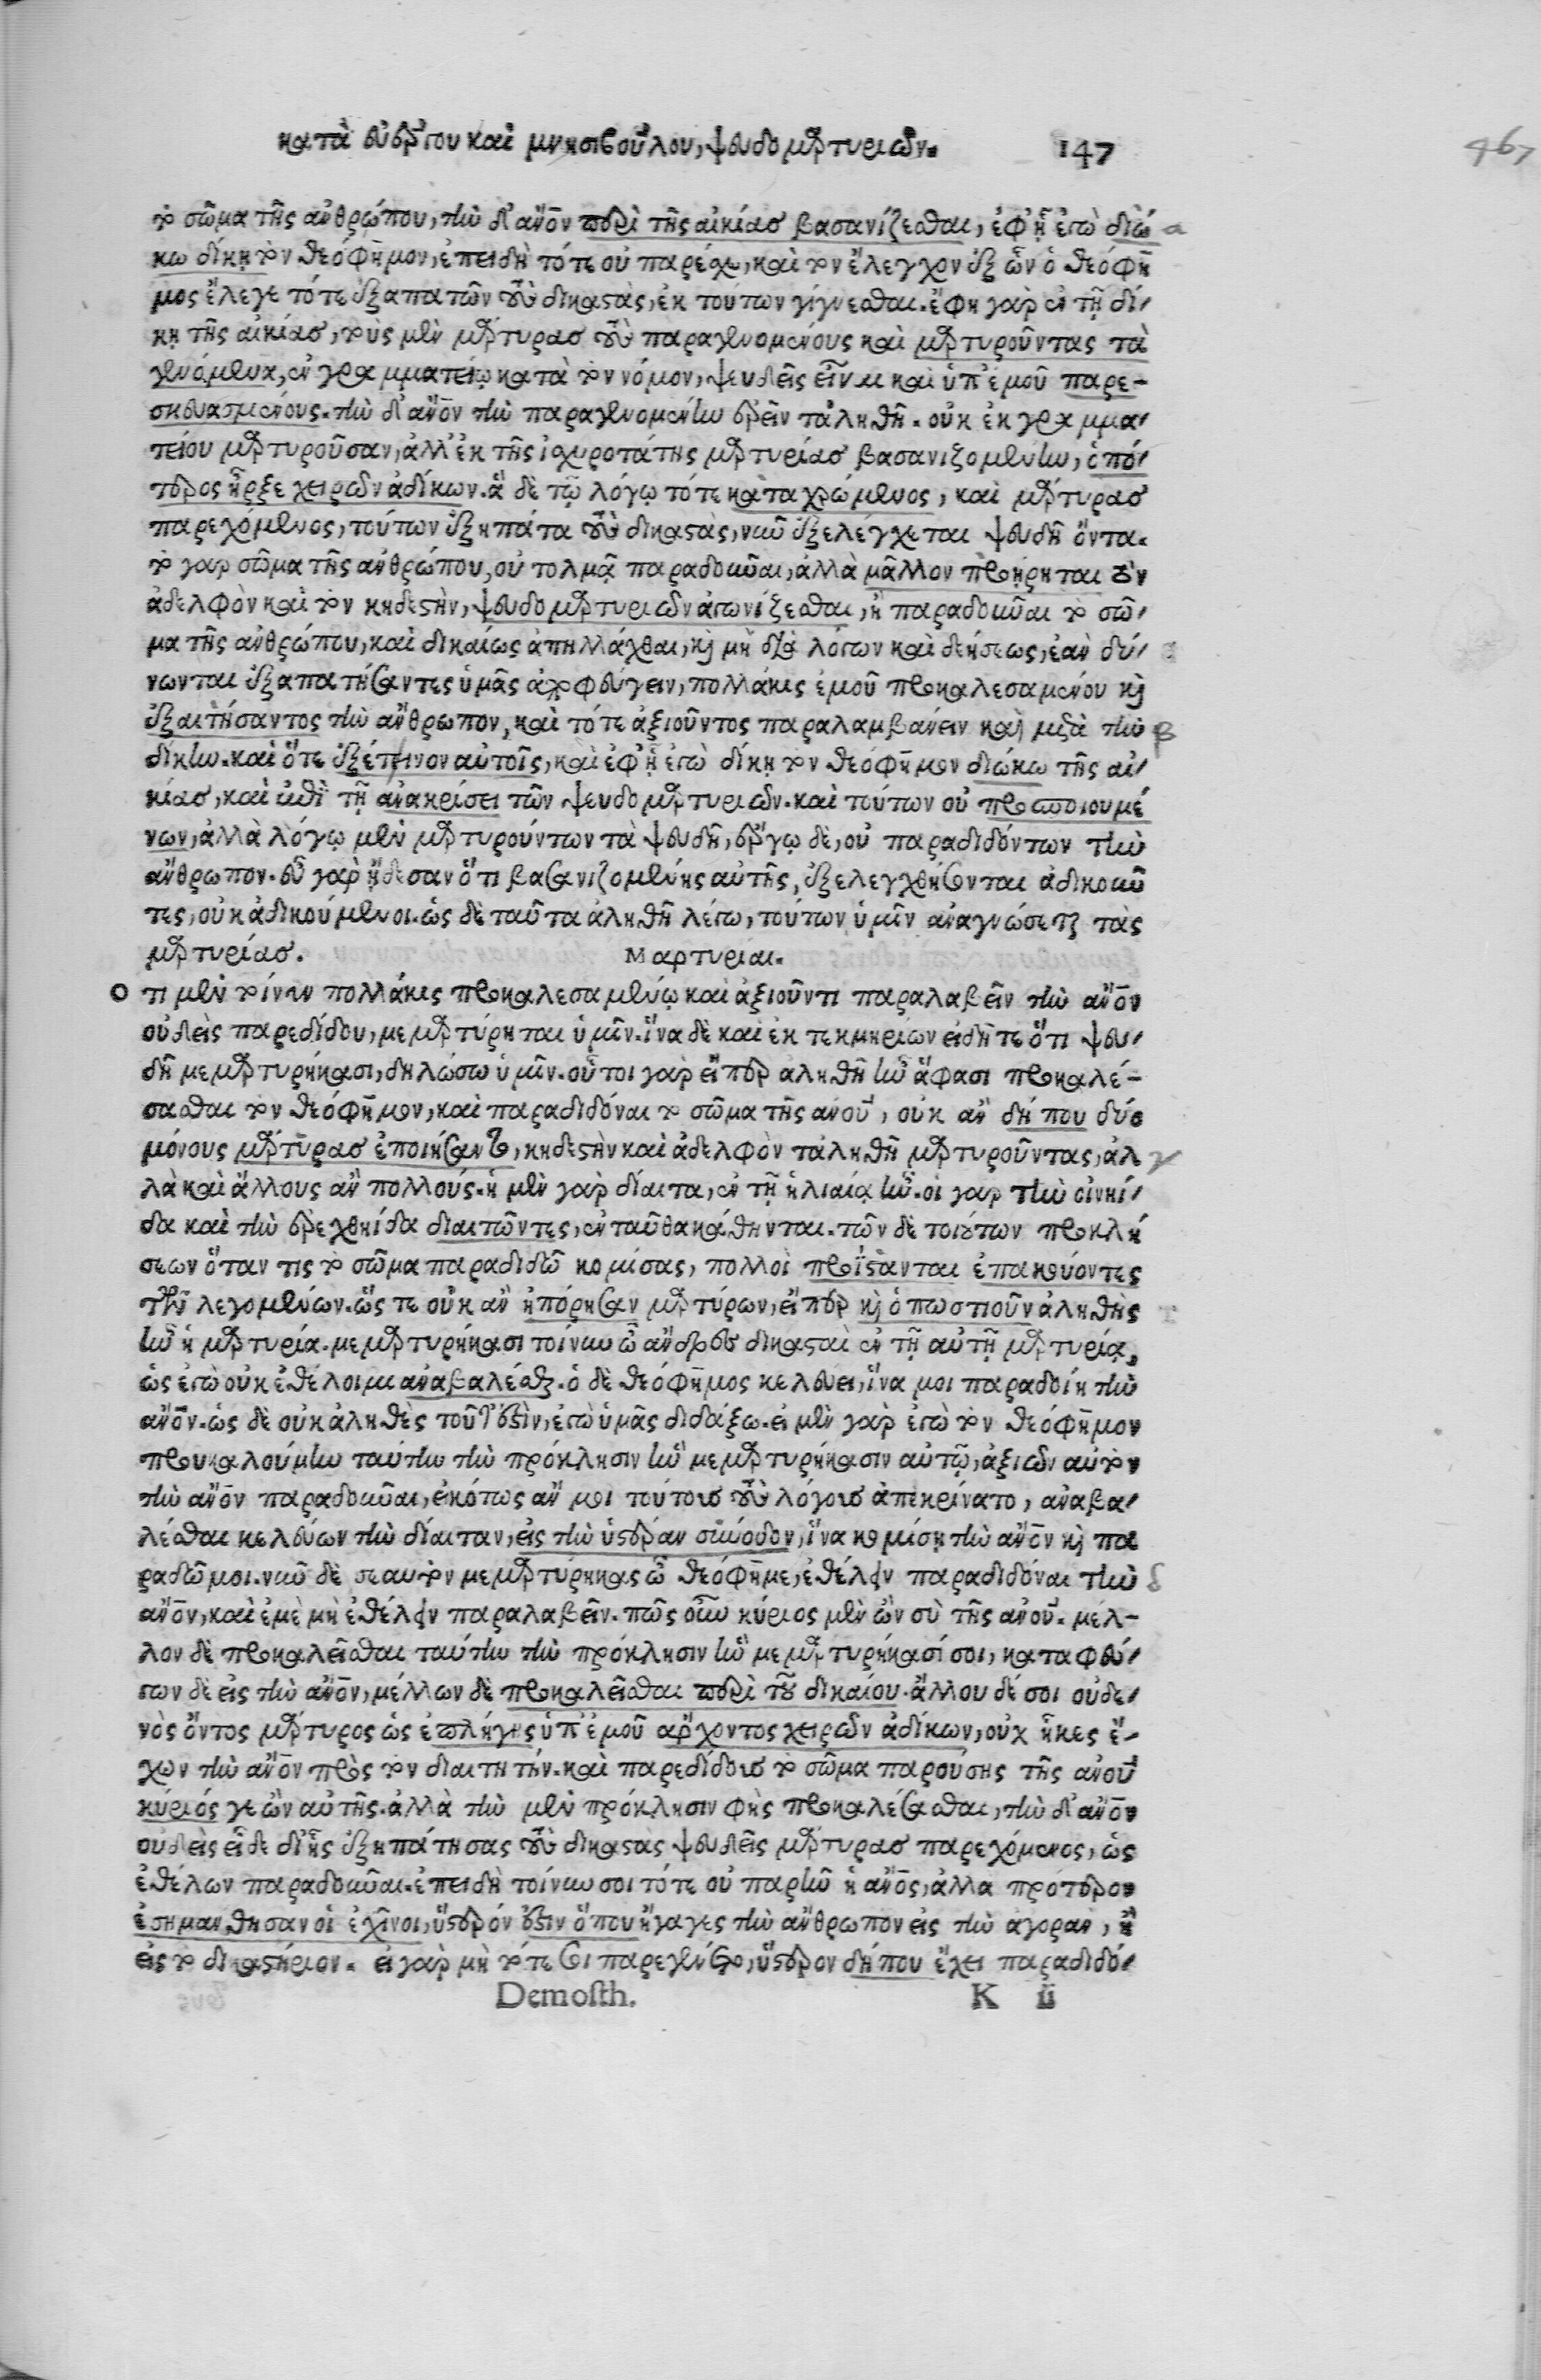 κατὰ εὐέργου καὶ μνησιβούλου, ψευδομαρτυριῶν. 147
467
τὸ σῶμα τῆς ἀνθρώπου, τὴν δ' ἄνον περὶ τῆς αἰκίας βασανίζεσθαι, ἐφ' ᾗ ἐγὼ διώ- α
κω δίκῃ τὸν θεόφημον, ἐπειδὴ τότε οὐ παρέσχε, καὶ τὸν ἔλεγχον ἐξ ὧν ὁ θεόφη
μος ἔλεγε τότε ἐξαπατῶν τοὺς δικαστὰς, ἐκ τούτων γίγνεσθαι. ἔφη γὰρ ἐν τῇ δί-
κῃ τῆς αἰκίας, τοὺς μὲν μάρτυρας τοὺς παραγενομένους καὶ μαρτυροῦντας τὰ
γενόμενα, ἐν γραμματείῳ κατὰ τὸν νόμον, ψευδεῖς εἶναι καὶ ὑπ' ἐμοῦ παρε-
σκευασμένους. τὴν δ' ἄνον τὴν παραγενομένην ἐρεῖν τἀληθῆ. οὐκ ἐκ γραμμα-
τείου μαρτυροῦσαν, ἀλλ' ἐκ τῆς ἰσχυροτάτης μαρτυρίας βασανιζομένην, ὁπό-
τερος ἦρξε χειρῶν ἀδίκων. ἃ δὲ τῷ λόγῳ τότε καταχρώμενος, καὶ μάρτυρας
παρεχόμενος, τούτων ἐξηπάτα τοὺς δικαστὰς, νῦν ἐξελέγχεται ψευδῆ ὄντα.
τὸ γὰρ σῶμα τῆς ἀνθρώπου, οὐ τολμᾷ παραδοῦναι, ἀλλὰ μᾶλλον προῄρηται τὸν
ἀδελφὸν καὶ τὸν κηδεστὴν, ψευδομαρτυριῶν ἀγωνίζεσθαι, ἢ παραδοῦναι τὸ σῶ-
μα τῆς ἀνθρώπου, καὶ δικαίως ἀπηλλάχθαι, καὶ μὴ διὰ λόγων καὶ δεήσεως, ἐὰν δύ-
νωνται ἐξαπατήσαντες ὑμᾶς ἀποφεύγειν, πολλάκις ἐμοῦ προκαλεσαμένου καὶ
ἐξαιτήσαντος τὴν ἄνθρωπον, καὶ τότε ἀξιοῦντος παραλαμβάνειν καὶ μετὰ τὴν β
δίκην. καὶ ὅτε ἐξέτεινον αὐτοῖς, καὶ ἐφ' ᾗ ἐγὼ δίκῃ τὸν θεόφημον διώκω τῆς αἰ-
κίας, καὶ ἐπὶ τῇ ἀνακρίσει τῶν ψευδομαρτυριῶν. καὶ τούτων οὐ προσποιουμέ
νων, ἀλλὰ λόγῳ μὲν μαρτυρούντων τὰ ψευδῆ, ἔργῳ δὲ, οὐ παραδιδόντων τὴν
ἄνθρωπον. εὖ γὰρ ᾔδεσαν ὅτι βασανιζομένης αὐτῆς, ἐξελεγχθήσονται ἀδικοῦν
τες, οὐκ ἀδικούμενοι. ὡς δὲ ταῦτα ἀληθῆ λέγω, τούτων ὑμῖν ἀναγνώσεται τὰς
μαρτυρίας. Μαρτυρίαι.
Ο τι μὲν τοίνυν πολλάκις προκαλεσαμένῳ καὶ ἀξιοῦντι παραλαβεῖν τὴν ἄνον
οὐδεὶς παρεδίδου, μεμαρτύρηται ὑμῖν. ἵνα δὲ καὶ ἐκ τεκμηρίων εἰδῆτε ὅτι ψευ-
δῆ μεμαρτυρήκασι, δηλώσω ὑμῖν. οὗτοι γὰρ εἴπερ ἀληθῆ ἦν ἅ φασι προκαλέ-
σασθαι τὸν θεόφημον, καὶ παραδιδόναι τὸ σῶμα τῆς ἀνου, οὐκ ἂν δή που δύο
μόνους μάρτυρας ἐποιήσαντο, κηδεστὴν καὶ ἀδελφὸν τἀληθῆ μαρτυροῦντας, ἀλ γ
λὰ καὶ ἄλλους ἂν πολλούς. ἡ μὲν γὰρ δίαιτα, ἐν τῇ ἡλιαίᾳ ἦν. οἱ γὰρ τὴν οἰνηί-
δα καὶ τὴν ἐρεχθηίδα διαιτῶντες, ἐνταῦθα κάθηνται. τῶν δὲ τοιούτων προκλή
σεων ὅταν τις τὸ σῶμα παραδιδῷ κομίσας, πολλοὶ προΐστανται ἐπακούοντες
τῶν λεγομένων. ὥστε οὐκ ἂν ἠπόρησαν μαρτύρων, εἴπερ καὶ ὁπωστιοῦν ἀληθὴς
ἦν ἡ μαρτυρία. μεμαρτυρήκασι τοίνυν ὦ ἄνδρες δικασταὶ ἐν τῇ αὐτῇ μαρτυρίᾳ,
ὡς ἐγὼ οὐκ ἐθέλοιμι ἀναβαλέσθαι. ὁ δὲ θεόφημος κελεύει, ἵνα μοι παραδοίη τὴν
ἄνον. ὡς δὲ οὐκ ἀληθὲς τοῦτ' ἐστὶν, ἐγὼ ὑμᾶς διδάξω. εἰ μὲν γὰρ ἐγὼ τὸν θεόφημον
προυκαλούμην ταύτην τὴν πρόκλησιν ἣν μεμαρτυρήκασιν αὐτῷ, ἀξιῶν αὐτὸν
τὴν ἄνον παραδοῦναι, εἰκότως ἄν μοι τούτοις τοῖς λόγοις ἀπεκρίνατο, ἀναβα-
λέσθαι κελεύων τὴν δίαιταν, εἰς τὴν ὑστέραν σύνοδον, ἵνα κομίσῃ τὴν ἄνον καὶ πα
ραδῷ μοι. νῦν δὲ σεαυτὸν μεμαρτύρηκας ὦ θεόφημε, ἐθέλειν παραδιδόναι τὴν δ
ἄνον, καὶ ἐμὲ μὴ ἐθέλειν παραλαβεῖν. πῶς οὖν κύριος μὲν ὢν σὺ τῆς ἀνου. μέλ-
λον δὲ προκαλεῖσθαι ταύτην τὴν πρόκλησιν ἣν μεμαρτυρήκασί σοι, καταφεύ-
γων δὲ εἰς τὴν ἄνον, μέλλων δὲ προκαλεῖσθαι περὶ τοῦ δικαίου. ἄλλου δέ σοι οὐδε-
νὸς ὄντος μάρτυρος ὡς ἐπλήγης ὑπ' ἐμοῦ ἄρχοντος χειρῶν ἀδίκων, οὐχ ἧκες ἔ-
χων τὴν ἄνον πρὸς τὸν διαιτητήν. καὶ παρεδίδους τὸ σῶμα παρούσης τῆς ἀνου
κύριός γε ὢν αὐτῆς. ἀλλὰ τὴν μὲν πρόκλησιν φῂς προκαλέσασθαι, τὴν δ' ἄνον
οὐδεὶς εἶδε δι' ἧς ἐξηπάτησας τοὺς δικαστὰς ψευδεῖς μάρτυρας παρεχόμενος, ὡς
ἐθέλων παραδοῦναι. ἐπειδὴ τοίνυν σοι τότε οὐ παρῆν ἡ ἄνος, ἀλλα πρότερον
ἐσημανθησαν οἱ ἐχῖνοι, ὕστερόν ἐστιν ὅπου ἤγαγες τὴν ἄνθρωπον εἰς τὴν ἀγορὰν, ἢ
εἰς τὸ δικαστήριον. εἰ γὰρ μὴ τότε σοι παρεγένετο, ὕστερον δήπου ἔχει παραδιδό-
Demosth. K ii